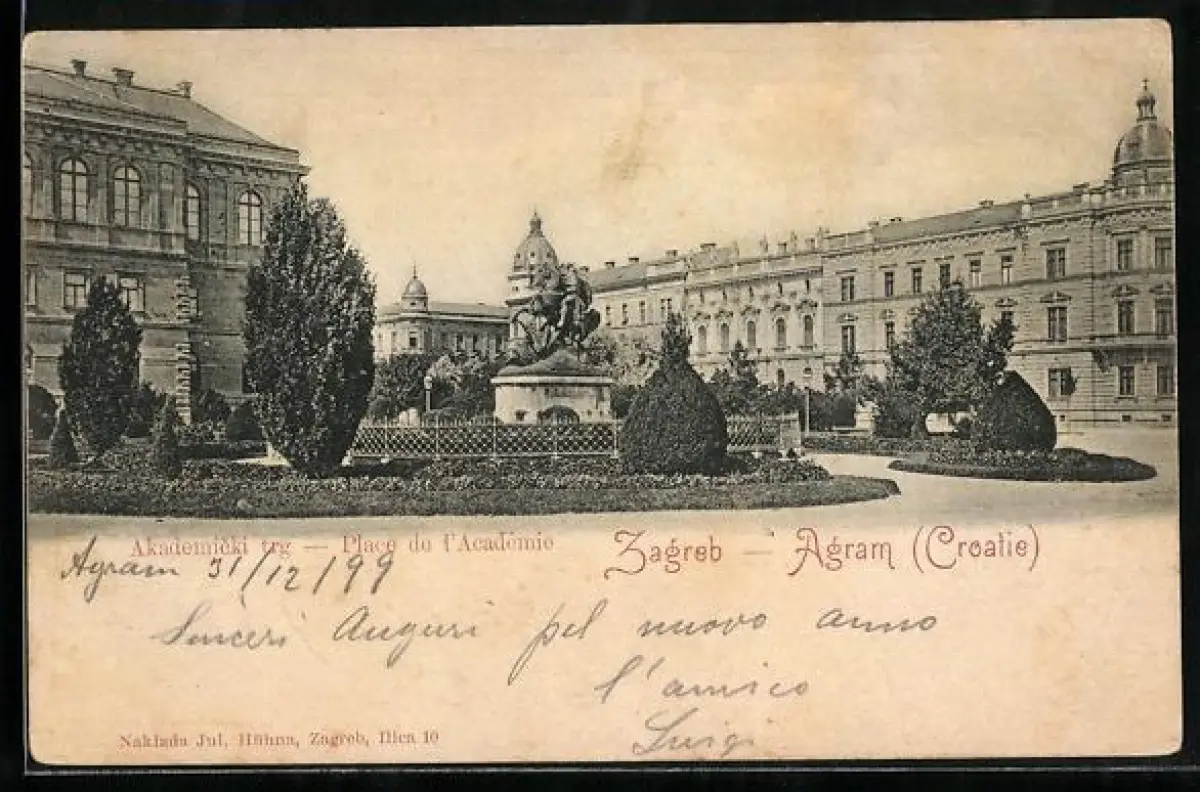 Akademički trg — Place de l'Académie
Zagreb — Agram (Croatie)
Agram 31/12/99
Sinceri Auguri pel nuovo anno
l'amico
Luigi
Naklada Jul. Hühna, Zagreb, Ilica 10